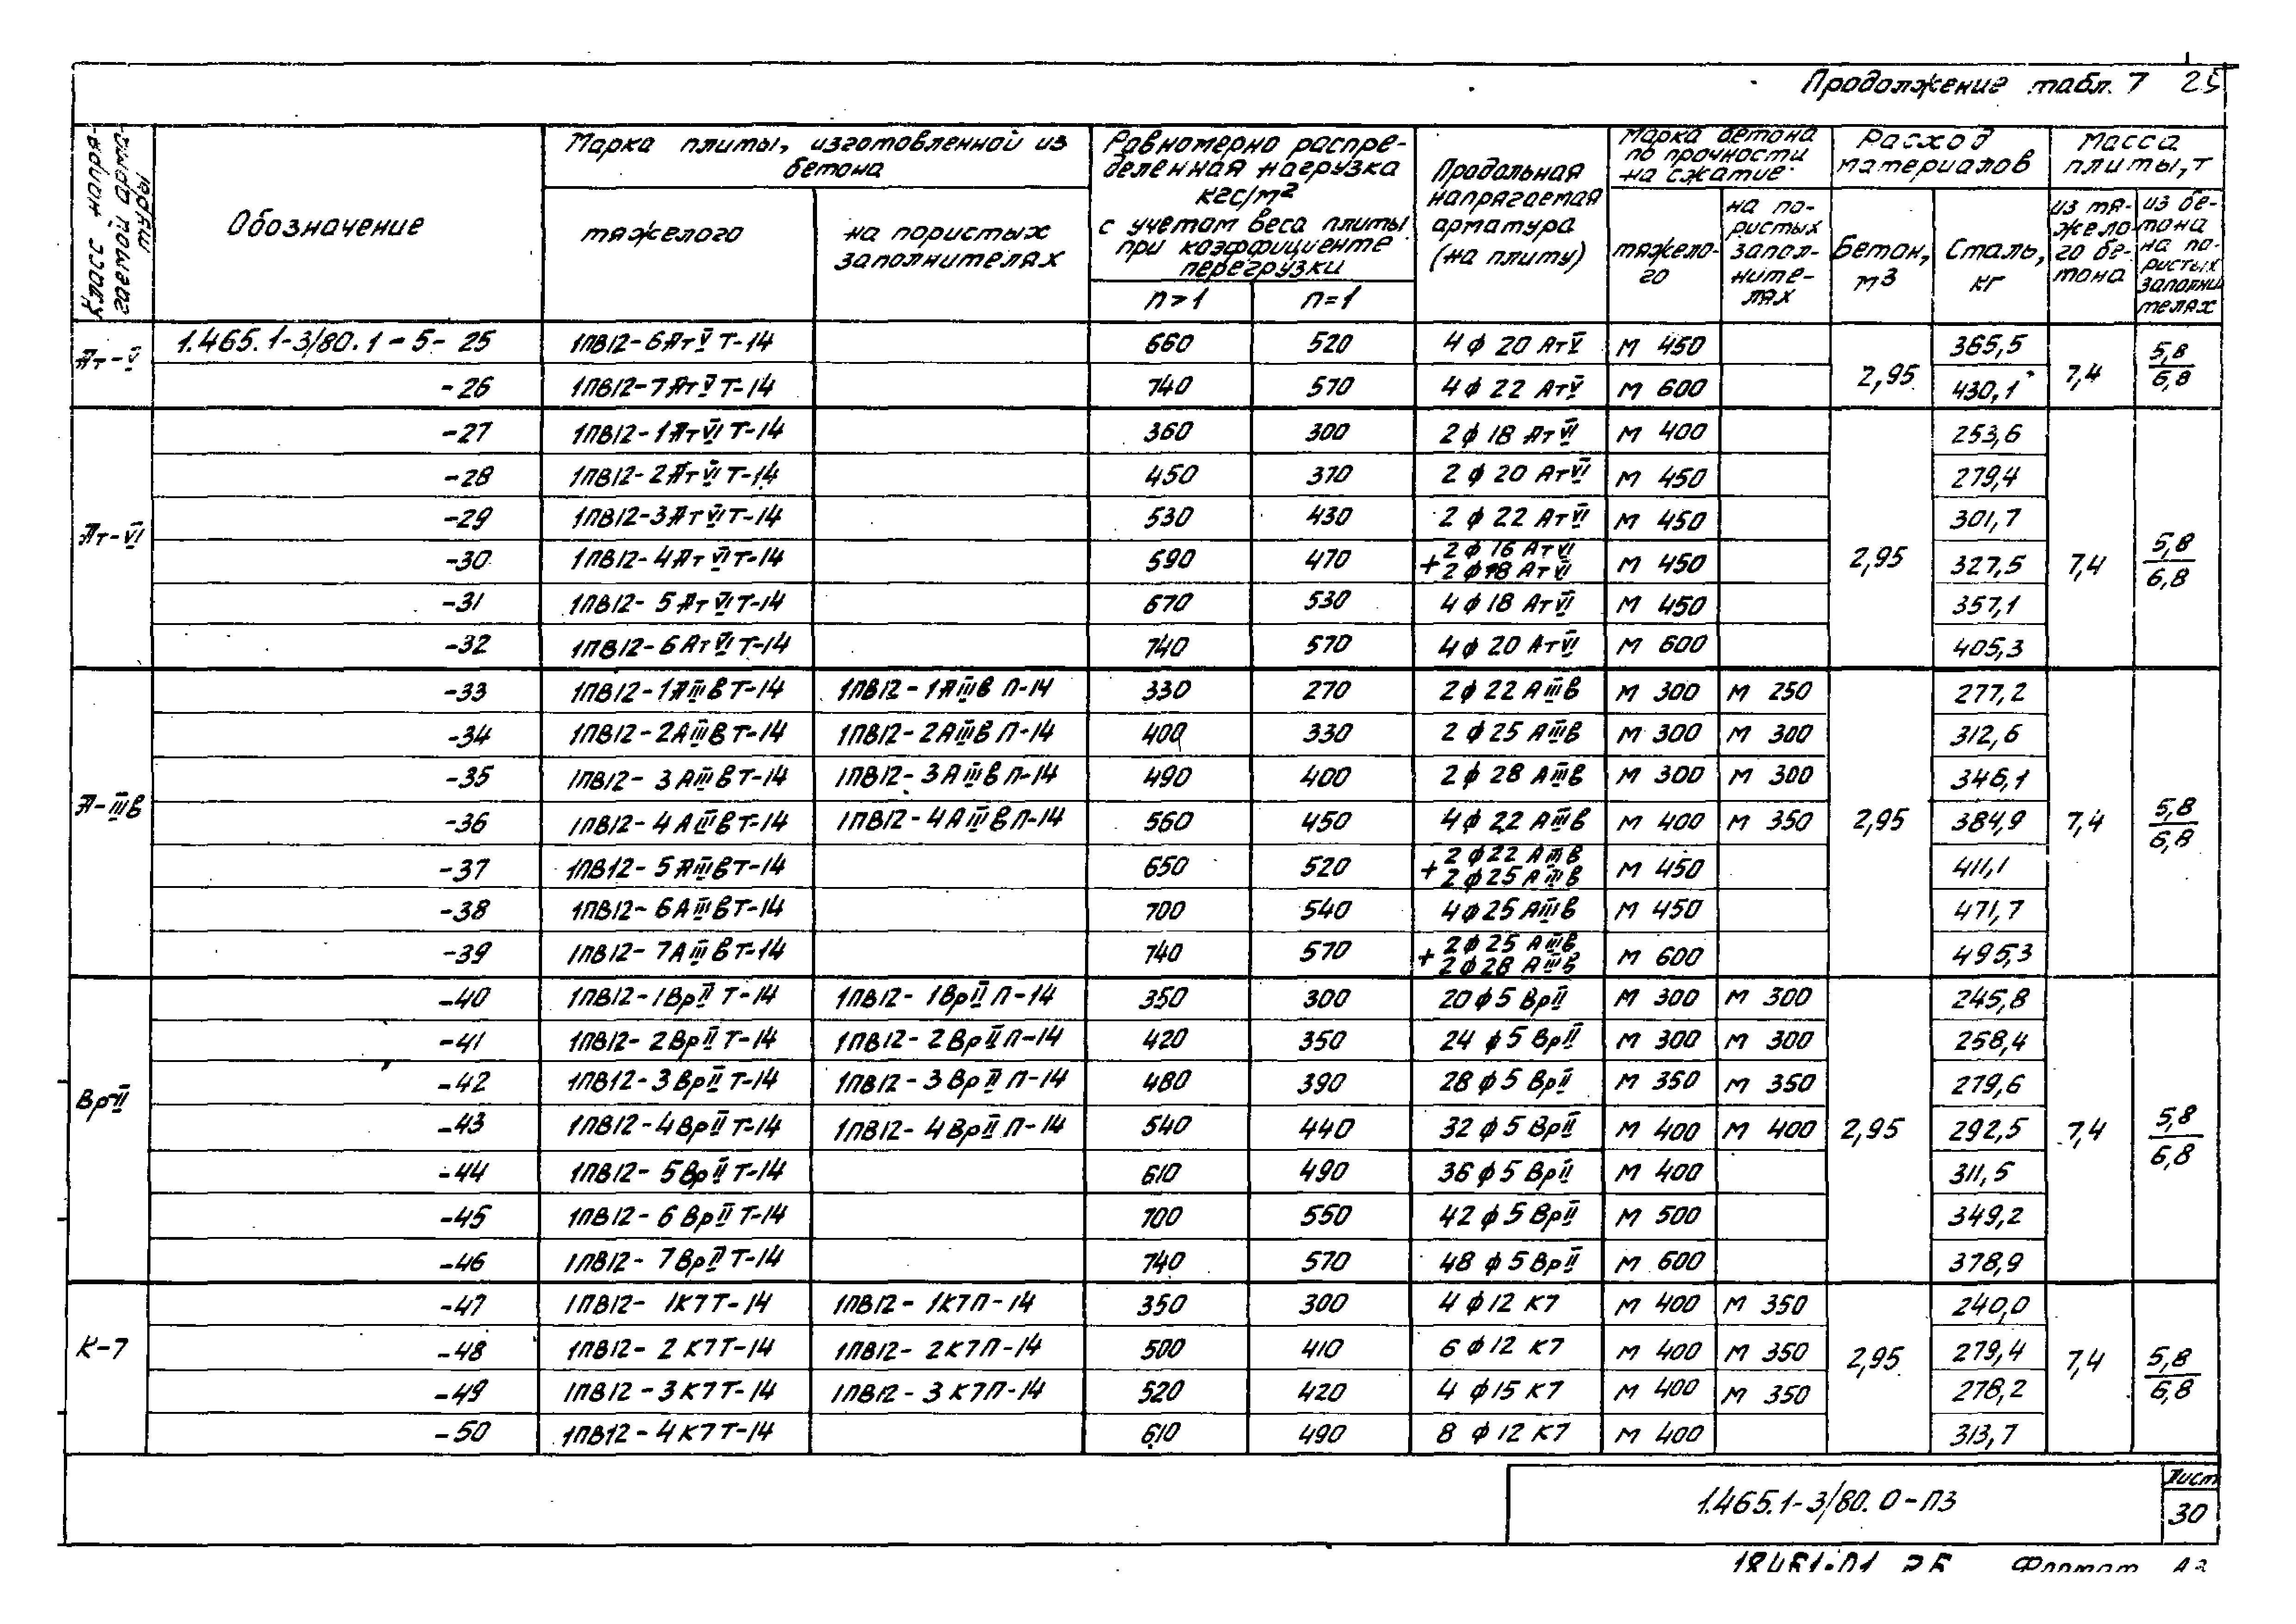 Продолжение табл. 7 25
Класс напря-
гаемой арма-
туры
Обозначение
Марка плиты, изготовленной из
бетона
тяжелого
на пористых
заполнителях
Равномерно распре-
деленная нагрузка
кгс/м²
с учетом веса плиты
при коэффициенте
перегрузки
n>1
n=1
Продольная
напрягаемая
арматура
(на плиту)
Марка бетона
по прочности
на сжатие
тяжело-
го
на по-
ристых
запол-
ните-
лях
Расход
материалов
Бетон,
м3
Сталь,
кг
Масса
плиты, т
из тя-
жело-
го бе-
тона
из бе-
тона
на по-
ристых
заполни
телях
Ат-V
1.465.1-3/80.1-5-25 1ПВ12-6АтVТ-14 660 520 4ф20 АтV М 450 365,5
-26 1ПВ12-7АтVТ-14 740 570 4ф22 АтV М 600 2,95 430,1 7,4 5,8/6,8
Ат-VI
-27 1ПВ12-1АтVIТ-14 360 300 2ф18 АтVI М 400 253,6
-28 1ПВ12-2АтVIТ-14 450 370 2ф20 АтVI М 450 279,4
-29 1ПВ12-3АтVIТ-14 530 430 2ф22 АтVI М 450 301,7
-30 1ПВ12-4АтVIТ-14 590 470 2ф16 АтVI + 2ф18 АтVI М 450 2,95 327,5 7,4 5,8/6,8
-31 1ПВ12-5АтVIТ-14 670 530 4ф18 АтVI М 450 357,1
-32 1ПВ12-6АтVIТ-14 740 570 4ф20 АтVI М 600 405,3
А-IIIв
-33 1ПВ12-1АIIIвТ-14 1ПВ12-1АIIIвП-14 330 270 2ф22 АIIIв М 300 М 250 277,2
-34 1ПВ12-2АIIIвТ-14 1ПВ12-2АIIIвП-14 400 330 2ф25 АIIIв М 300 М 300 312,6
-35 1ПВ12-3АIIIвТ-14 1ПВ12-3АIIIвП-14 490 400 2ф28 АIIIв М 300 М 300 346,1
-36 1ПВ12-4АIIIвТ-14 1ПВ12-4АIIIвП-14 560 450 4ф22 АIIIв М 400 М 350 2,95 384,9 7,4 5,8/6,8
-37 1ПВ12-5АIIIвТ-14 650 520 2ф22 АIIIв + 2ф25 АIIIв М 450 411,1
-38 1ПВ12-6АIIIвТ-14 700 540 4ф25 АIIIв М 450 471,7
-39 1ПВ12-7АIIIвТ-14 740 570 2ф25 АIIIв + 2ф28 АIIIв М 600 495,3
ВрII
-40 1ПВ12-1ВрIIТ-14 1ПВ12-1ВрIIП-14 350 300 20ф5 ВрII М 300 М 300 245,8
-41 1ПВ12-2ВрIIТ-14 1ПВ12-2ВрIIП-14 420 350 24ф5 ВрII М 300 М 300 258,4
-42 1ПВ12-3ВрIIТ-14 1ПВ12-3ВрIIП-14 480 390 28ф5 ВрII М 350 М 350 279,6
-43 1ПВ12-4ВрIIТ-14 1ПВ12-4ВрIIП-14 540 440 32ф5 ВрII М 400 М 400 2,95 292,5 7,4 5,8/6,8
-44 1ПВ12-5ВрIIТ-14 610 490 36ф5 ВрII М 400 311,5
-45 1ПВ12-6ВрIIТ-14 700 550 42ф5 ВрII М 500 349,2
-46 1ПВ12-7ВрIIТ-14 740 570 48ф5 ВрII М 600 378,9
К-7
-47 1ПВ12-1К7Т-14 1ПВ12-1К7П-14 350 300 4ф12 К7 М 400 М 350 240,0
-48 1ПВ12-2К7Т-14 1ПВ12-2К7П-14 500 410 6ф12 К7 М 400 М 350 2,95 279,4 7,4 5,8/6,8
-49 1ПВ12-3К7Т-14 1ПВ12-3К7П-14 520 420 4ф15 К7 М 400 М 350 278,2
-50 1ПВ12-4К7Т-14 610 490 8ф12 К7 М 400 313,7
1.465.1-3/80.0-ПЗ
Лист
30
Формат